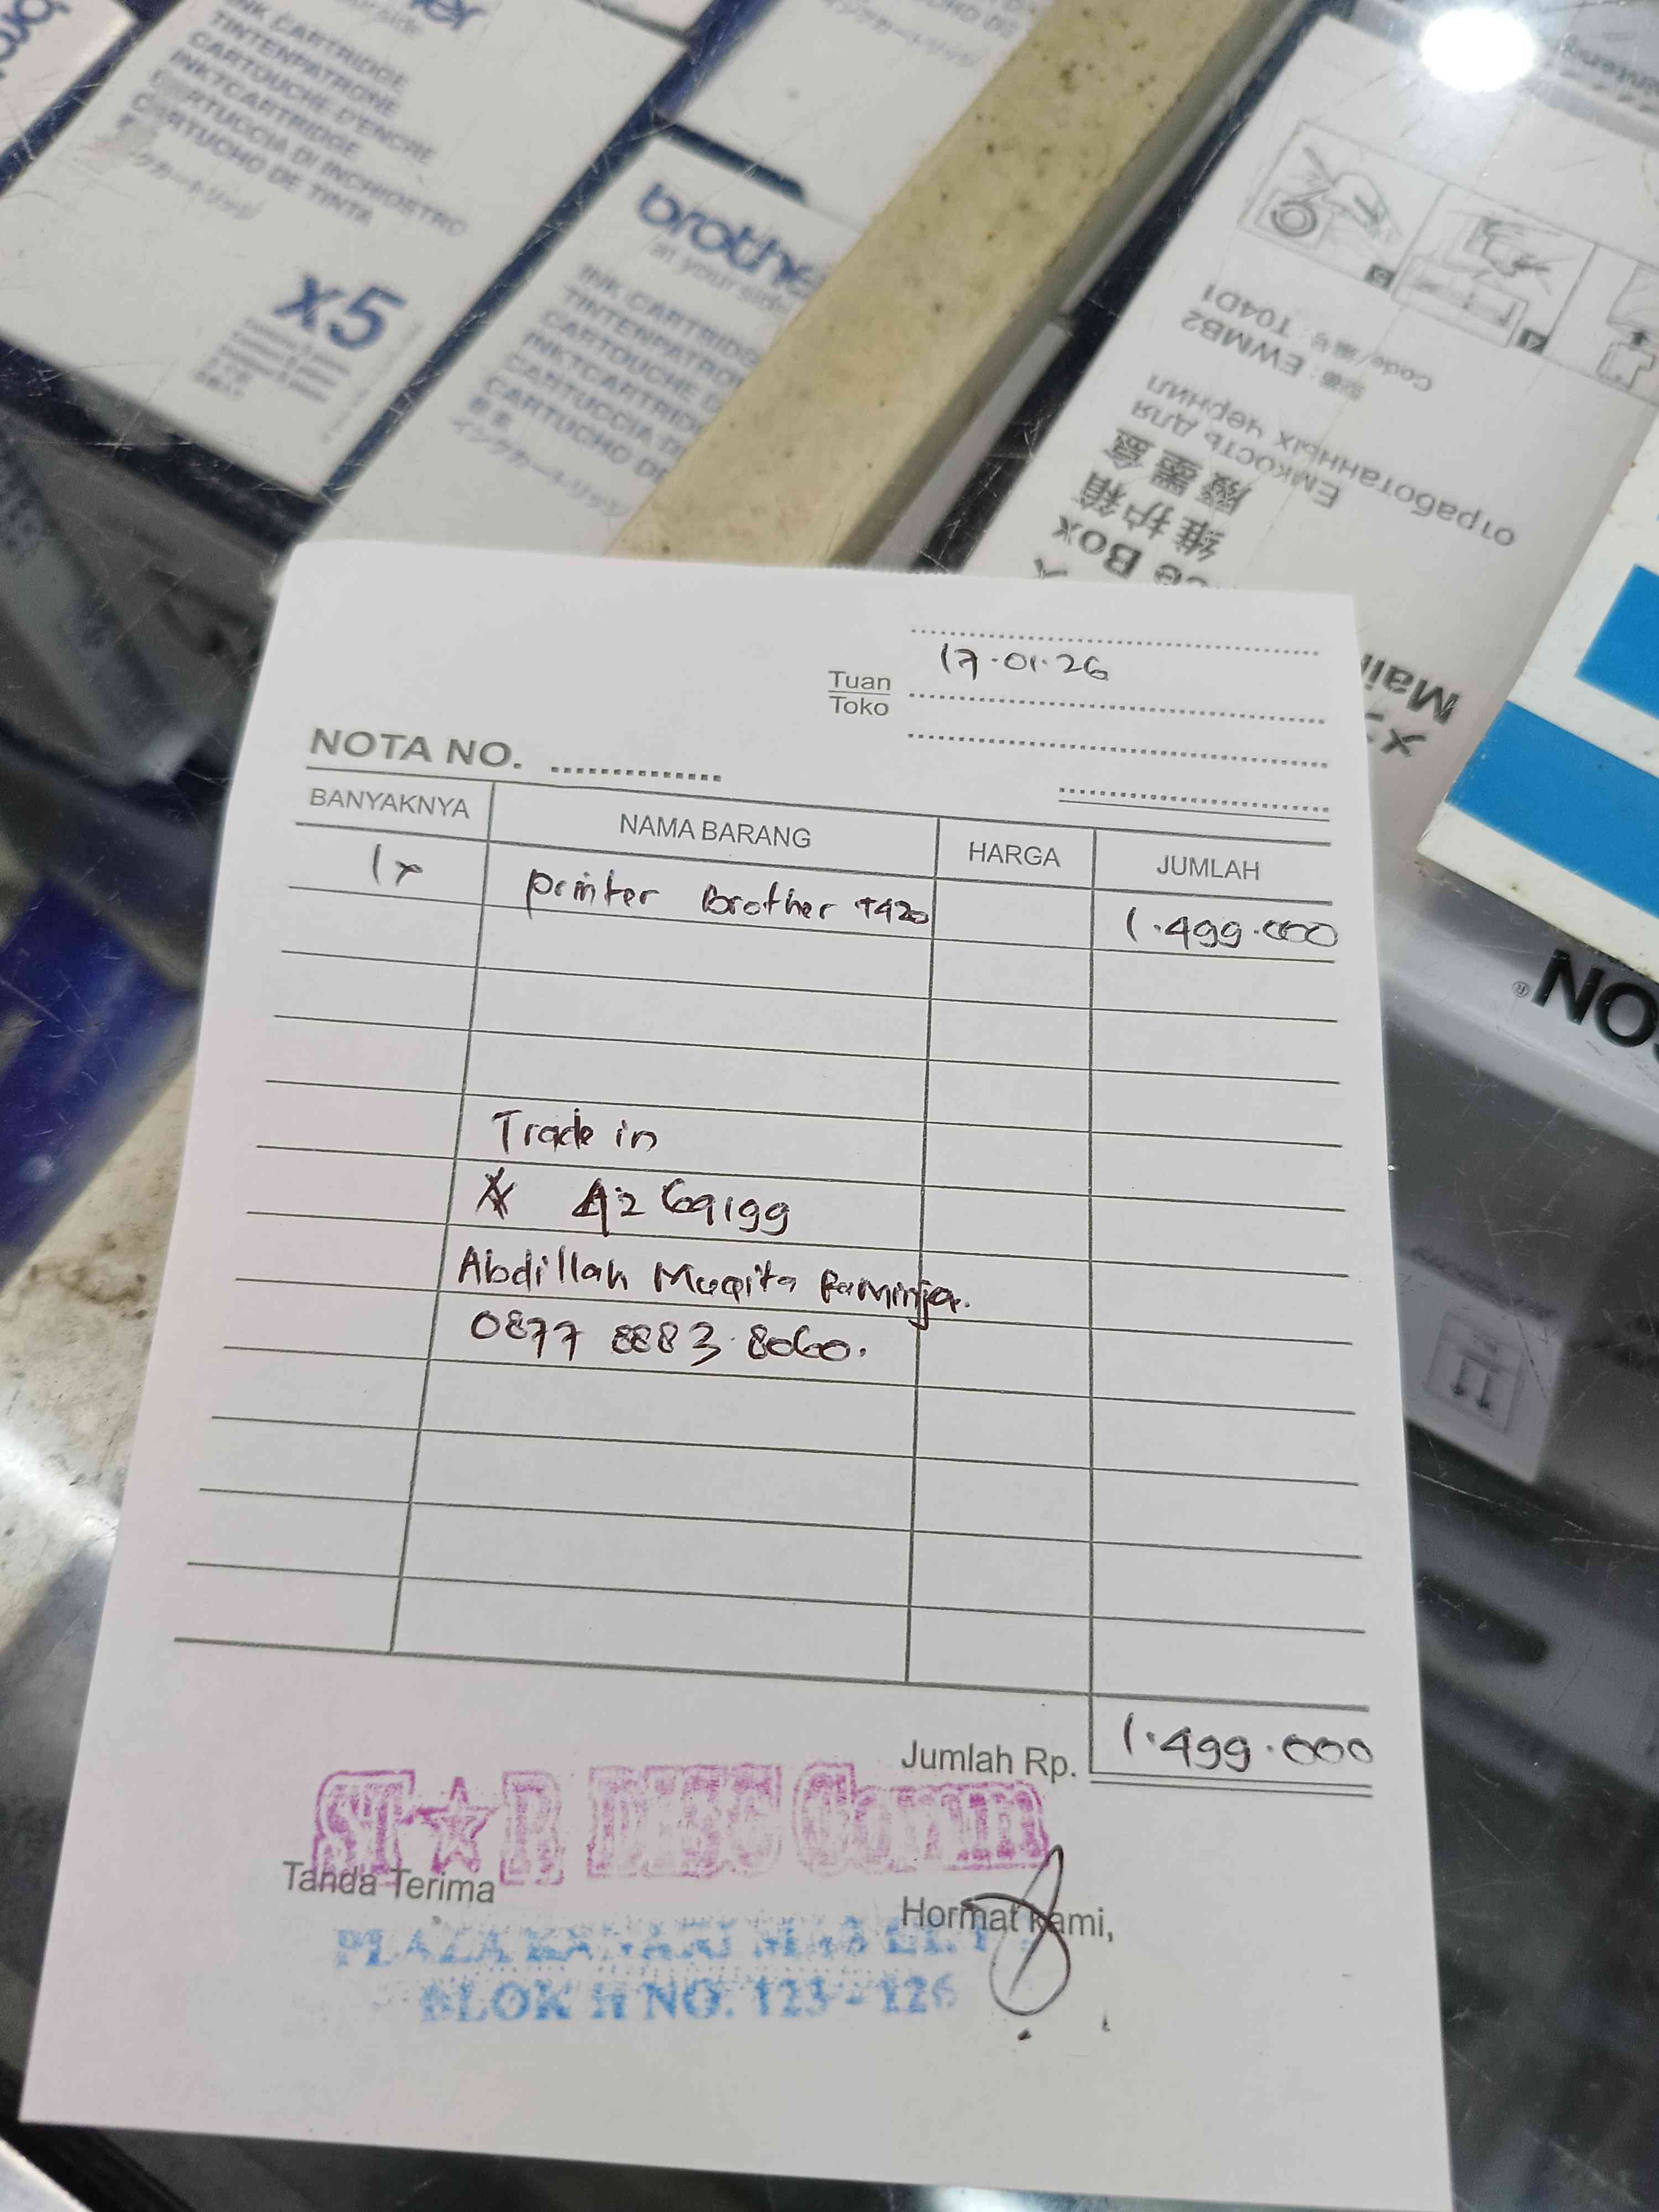 INK CARTRIDGE
TINTENPATRONE
CARTOUCHE D'ENCRE
INKTCARTRIDGE
CARTUCCIA DI INCHIOSTRO
CARTUCHO DE TINTA
x5
brother
at your side
INK CARTRIDGE
TINTENPATRON
CARTOUCHE D
INKTCARTRID
CARTUCCIA D
CARTUCHO D
インクカートリッジ
Code/編号: T04D1
EWMB2
Емкость для
отработанных чернил
維护箱
廢墨盒
ce Box
Mai
ON®
17.01.26
Tuan
Toko
NOTA NO.
BANYAKNYA NAMA BARANG HARGA JUMLAH
1x printer Brother T420 1.499.000
Trade in
A2 69199
Abdillah Muqita
0877 8883 8060.
Jumlah Rp. 1.499.000
ST★R DISC Comm
Tanda Terima
Hormat kami,
BLOK H NO. 123 - 126